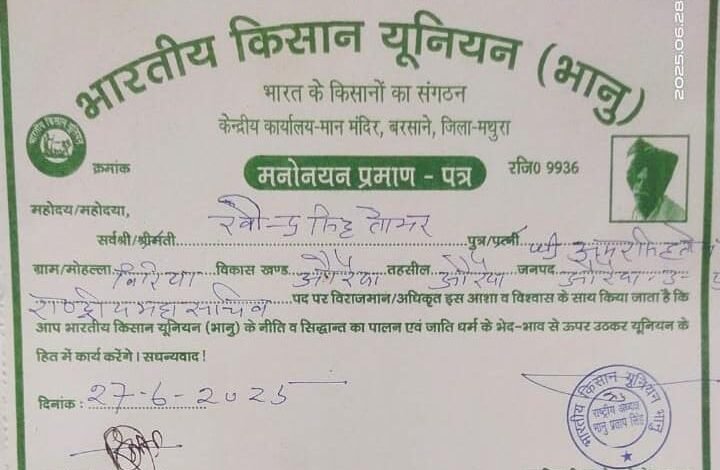 भारतीय किसान यूनियन (भानु)
2025.06.28
भारत के किसानों का संगठन
केन्द्रीय कार्यालय-मान मंदिर, बरसाने, जिला-मथुरा
भारतीय किसान यूनियन
क्रमांक
मनोनयन प्रमाण - पत्र
रजि0 9936
महोदय/महोदया,
सर्वश्री/श्रीमती रवीन्द्र सिंह तोमर पुत्र/पत्नी श्री
ग्राम/मोहल्ला विकास खण्ड औरैया तहसील औरैया जनपद औरैया
राष्ट्रीय महासचिव पद पर विराजमान/अधिकृत इस आशा व विश्वास के साथ किया जाता है कि
आप भारतीय किसान यूनियन (भानु) के नीति व सिद्धान्त का पालन एवं जाति धर्म के भेद-भाव से ऊपर उठकर यूनियन के
हित में कार्य करेंगे। सधन्यवाद !
दिनांक : 27-6-2025
भारतीय किसान यूनियन भानु
राष्ट्रीय अध्यक्ष
भानु प्रताप सिंह